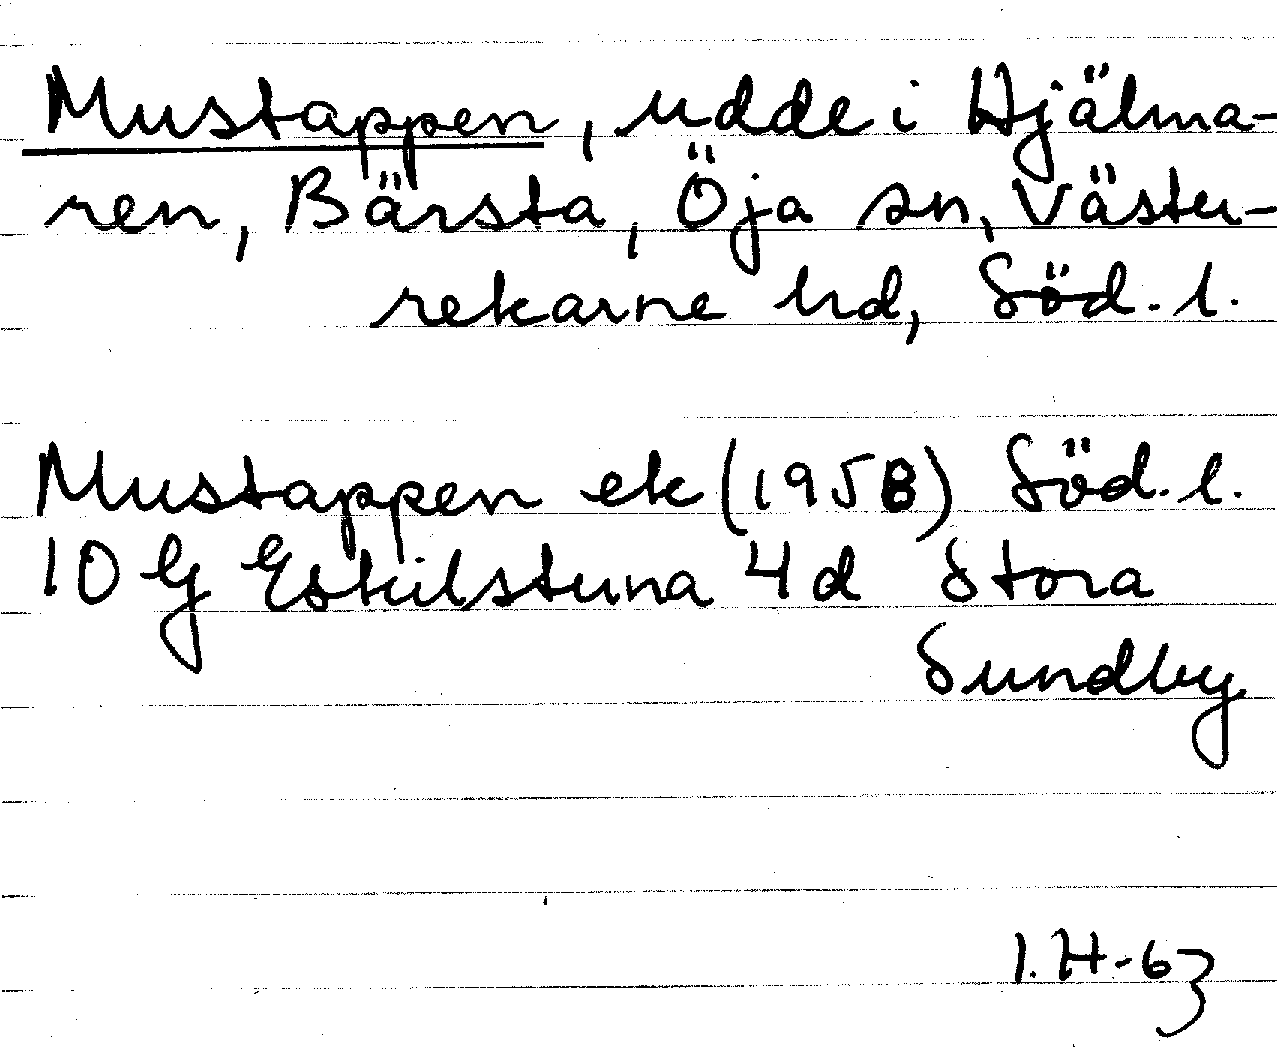 Mustappen, udde i Hjälma-
ren, Bärsta, Öja sn, Väster-
rekarne hd, Söd. l.
Mustappen ek (1958) Söd. l.
10 G Eskilstuna 4 d Stora
Sundby
I. H-63